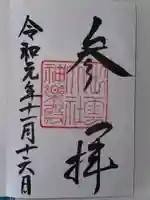 参拝
令和元年十一月十六日